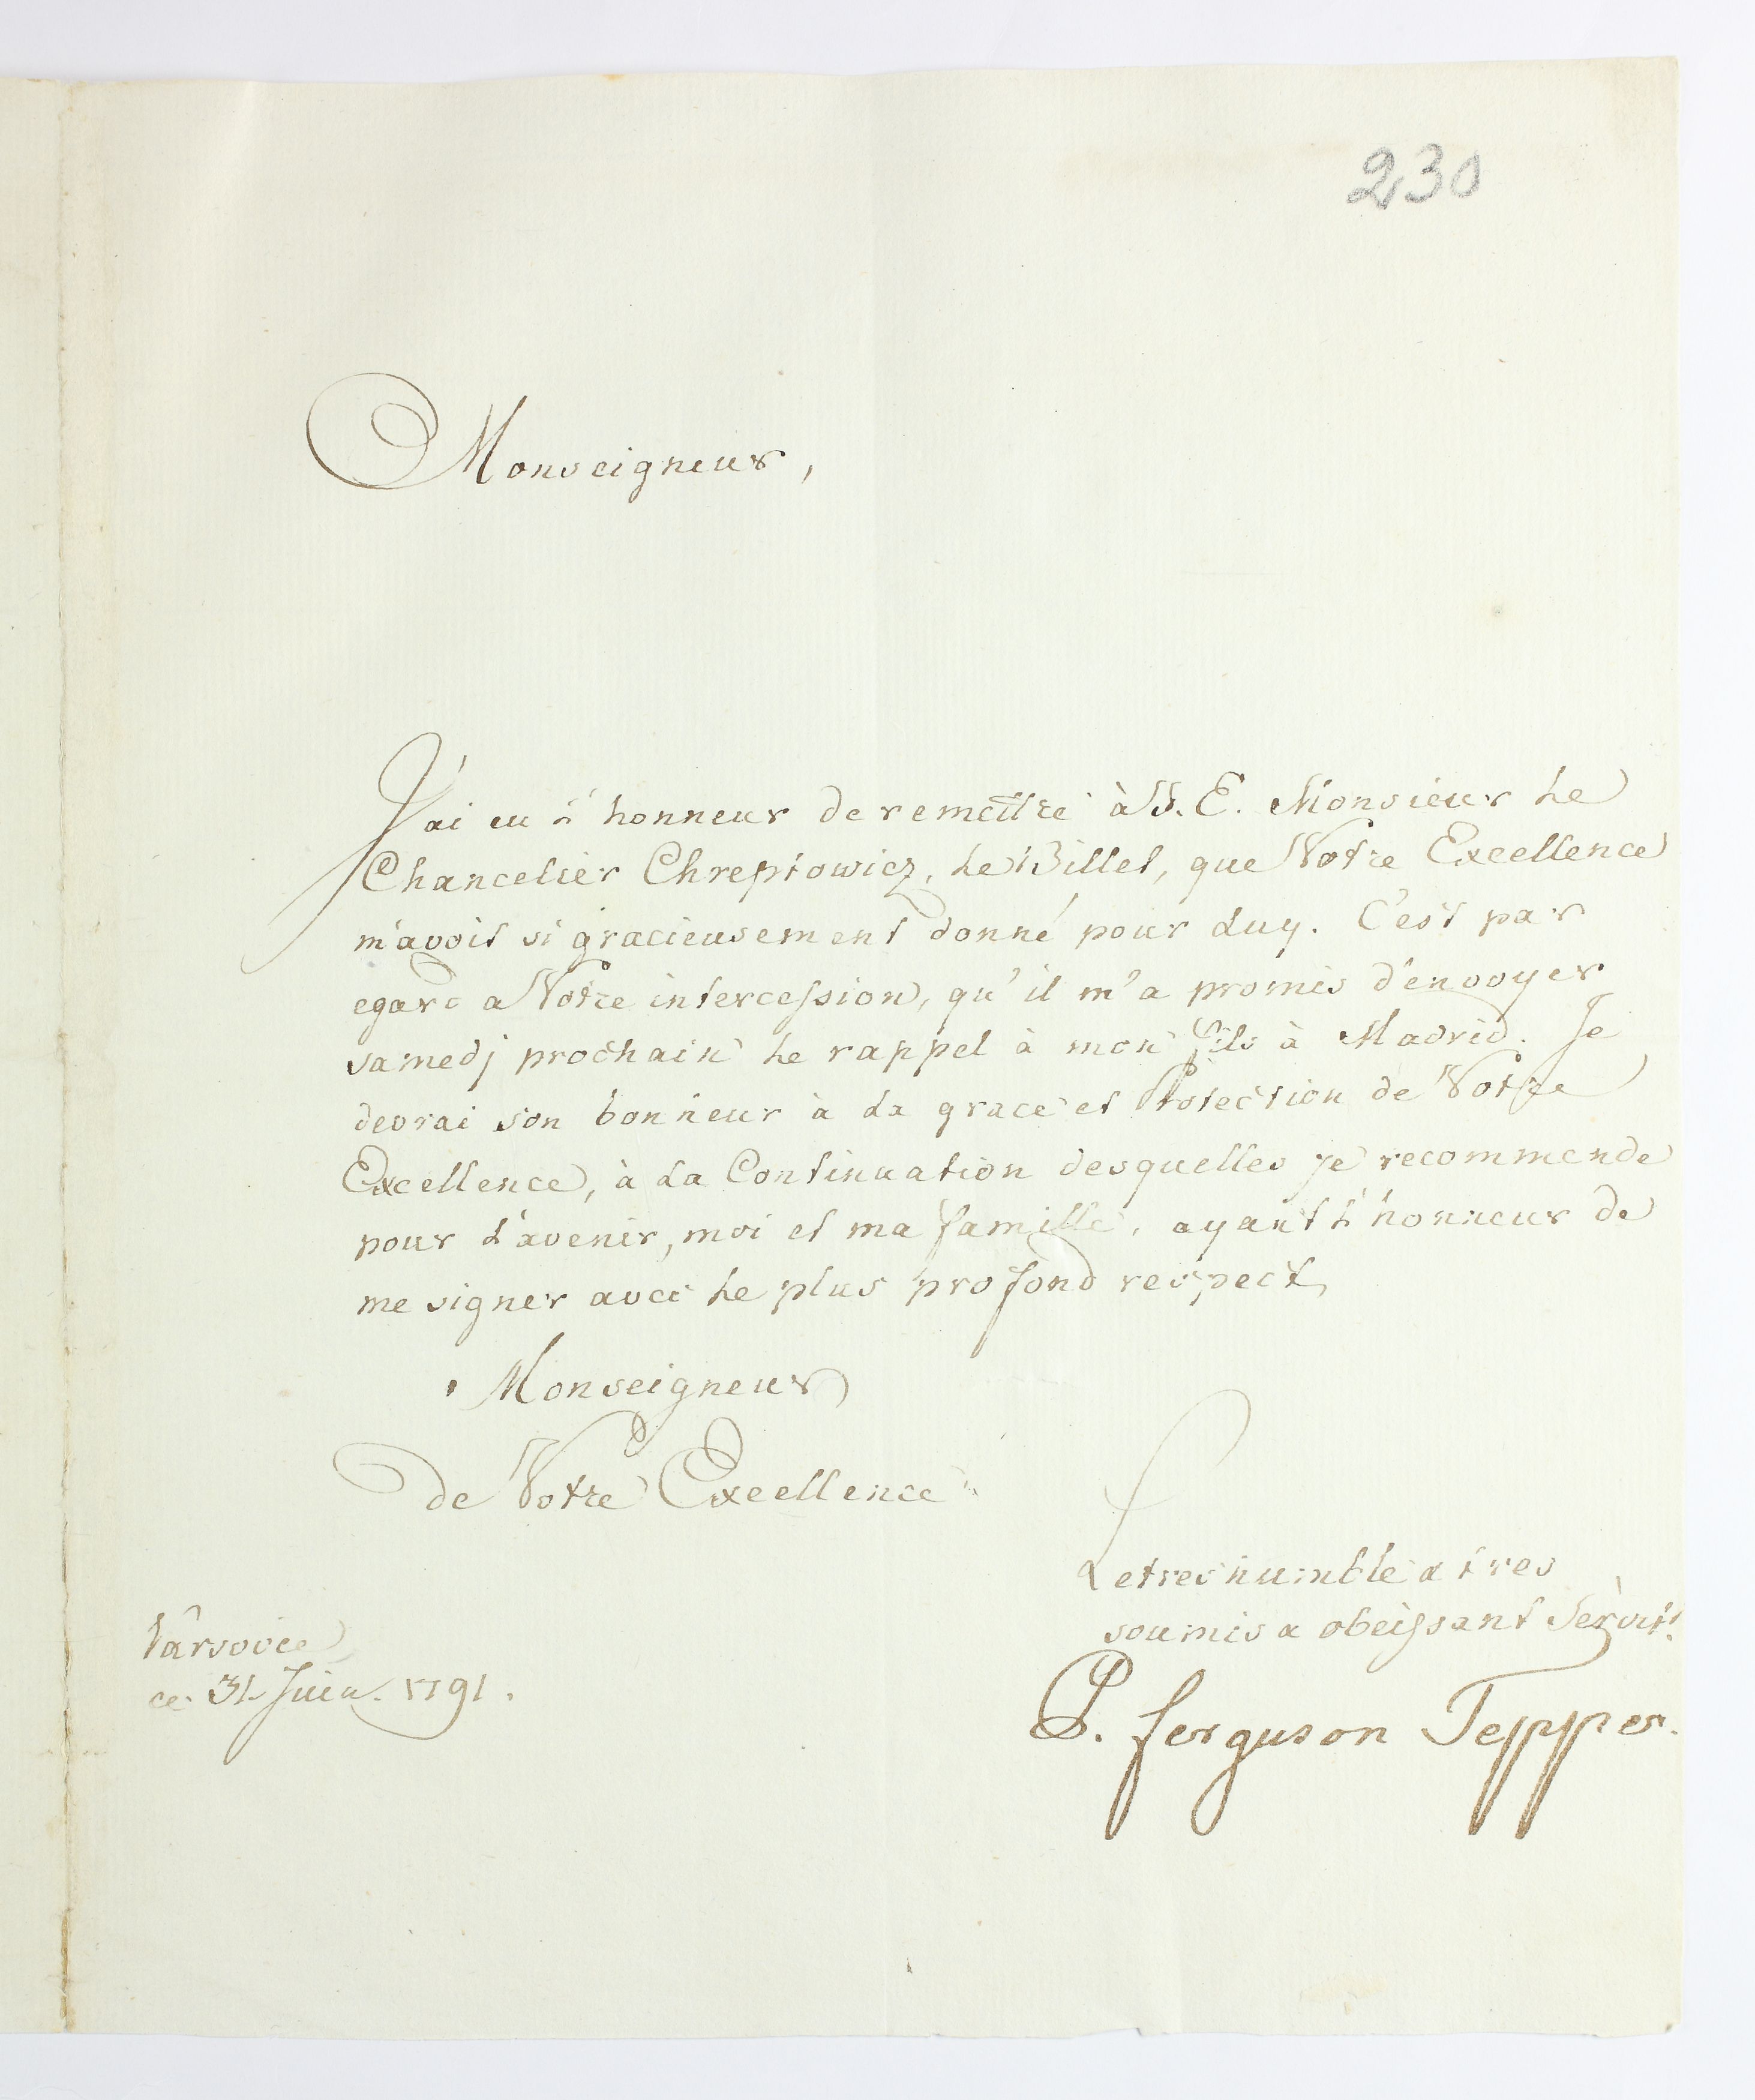 230
Monseigneur,
J'ai eu l'honneur de remettre à S. E. Monsieur Le
Chancelier Chreptowicz, Le Billet, que Votre Excellence
m'avoit si gracieusement donné pour Luy. C'est par
egard a Votre intercession, qu'il m'a promis d'envoyer
samedj prochain Le rappel à mon fils à Madrid. Je
devrai son bonheur à La grace et Protection de Votre
Excellence, à La Continuation desquelles je recommende
pour L'avenir, moi et ma famille, ayant L'honneur de
me signer avec Le plus profond respect
Monseigneur
de Votre Excellence
Le tres humble & tres
soumis & obeissant Servit.
Varsovie
ce 31. Juin. 1791.
P. ferguson Tepper.